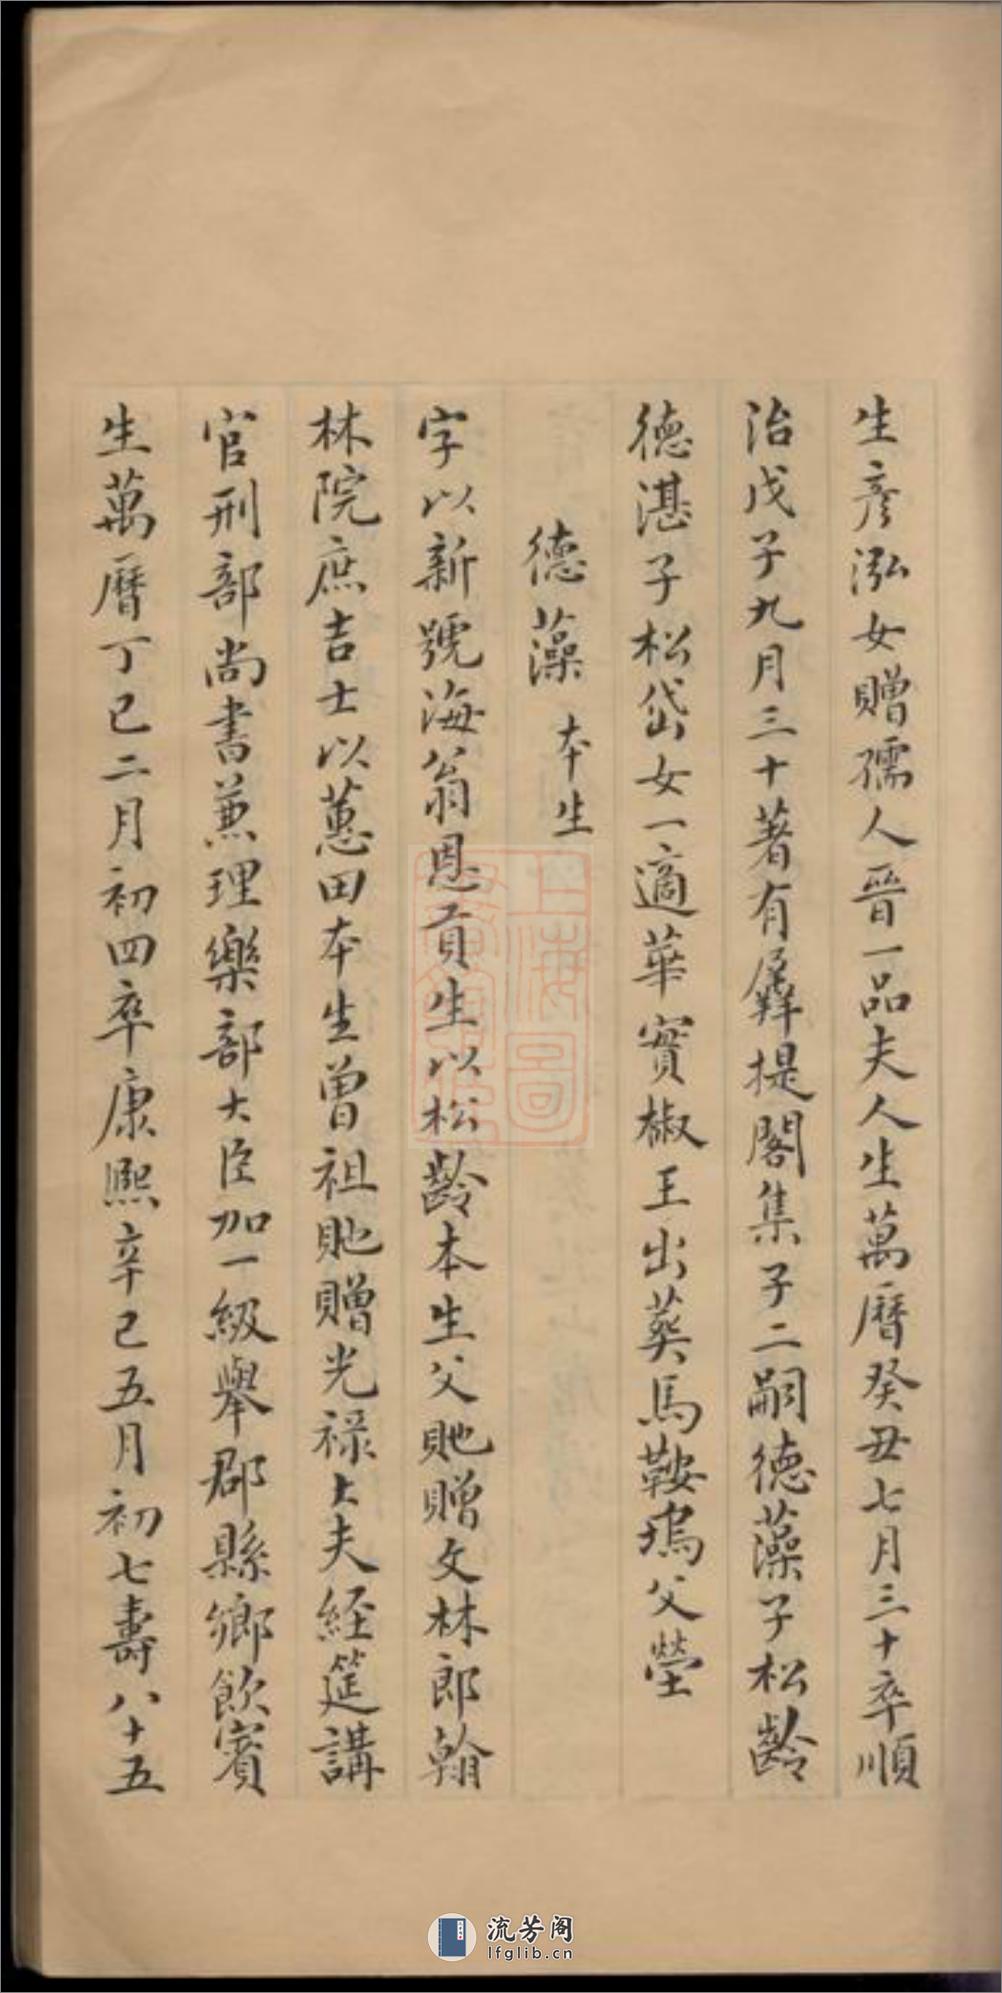 生彦泓女贈孺人晉一品夫人生萬曆癸丑七月三十卒順
治戊子九月三十著有羼提閣集子二嗣德藻子松齡
德湛子松岱女一適華實椒王出葬馬鞍塢父塋
德藻 本生
字以新號海翁恩貢生以松齡本生父貤贈文林郎翰
林院庶吉士以蕙田本生曾祖貤贈光祿大夫經筵講
官刑部尚書兼理樂部大臣加一級舉郡縣鄉飲賓
生萬曆丁巳二月初四卒康熙辛巳五月初七壽八十五
上海圖
書館藏
流芳阁
lfglib.cn